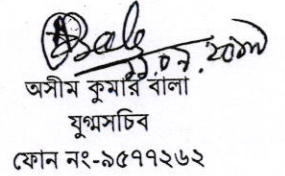 অসীম কুমার বালা
যুগ্মসচিব
ফোন নং-৯৫৭৭২৬২